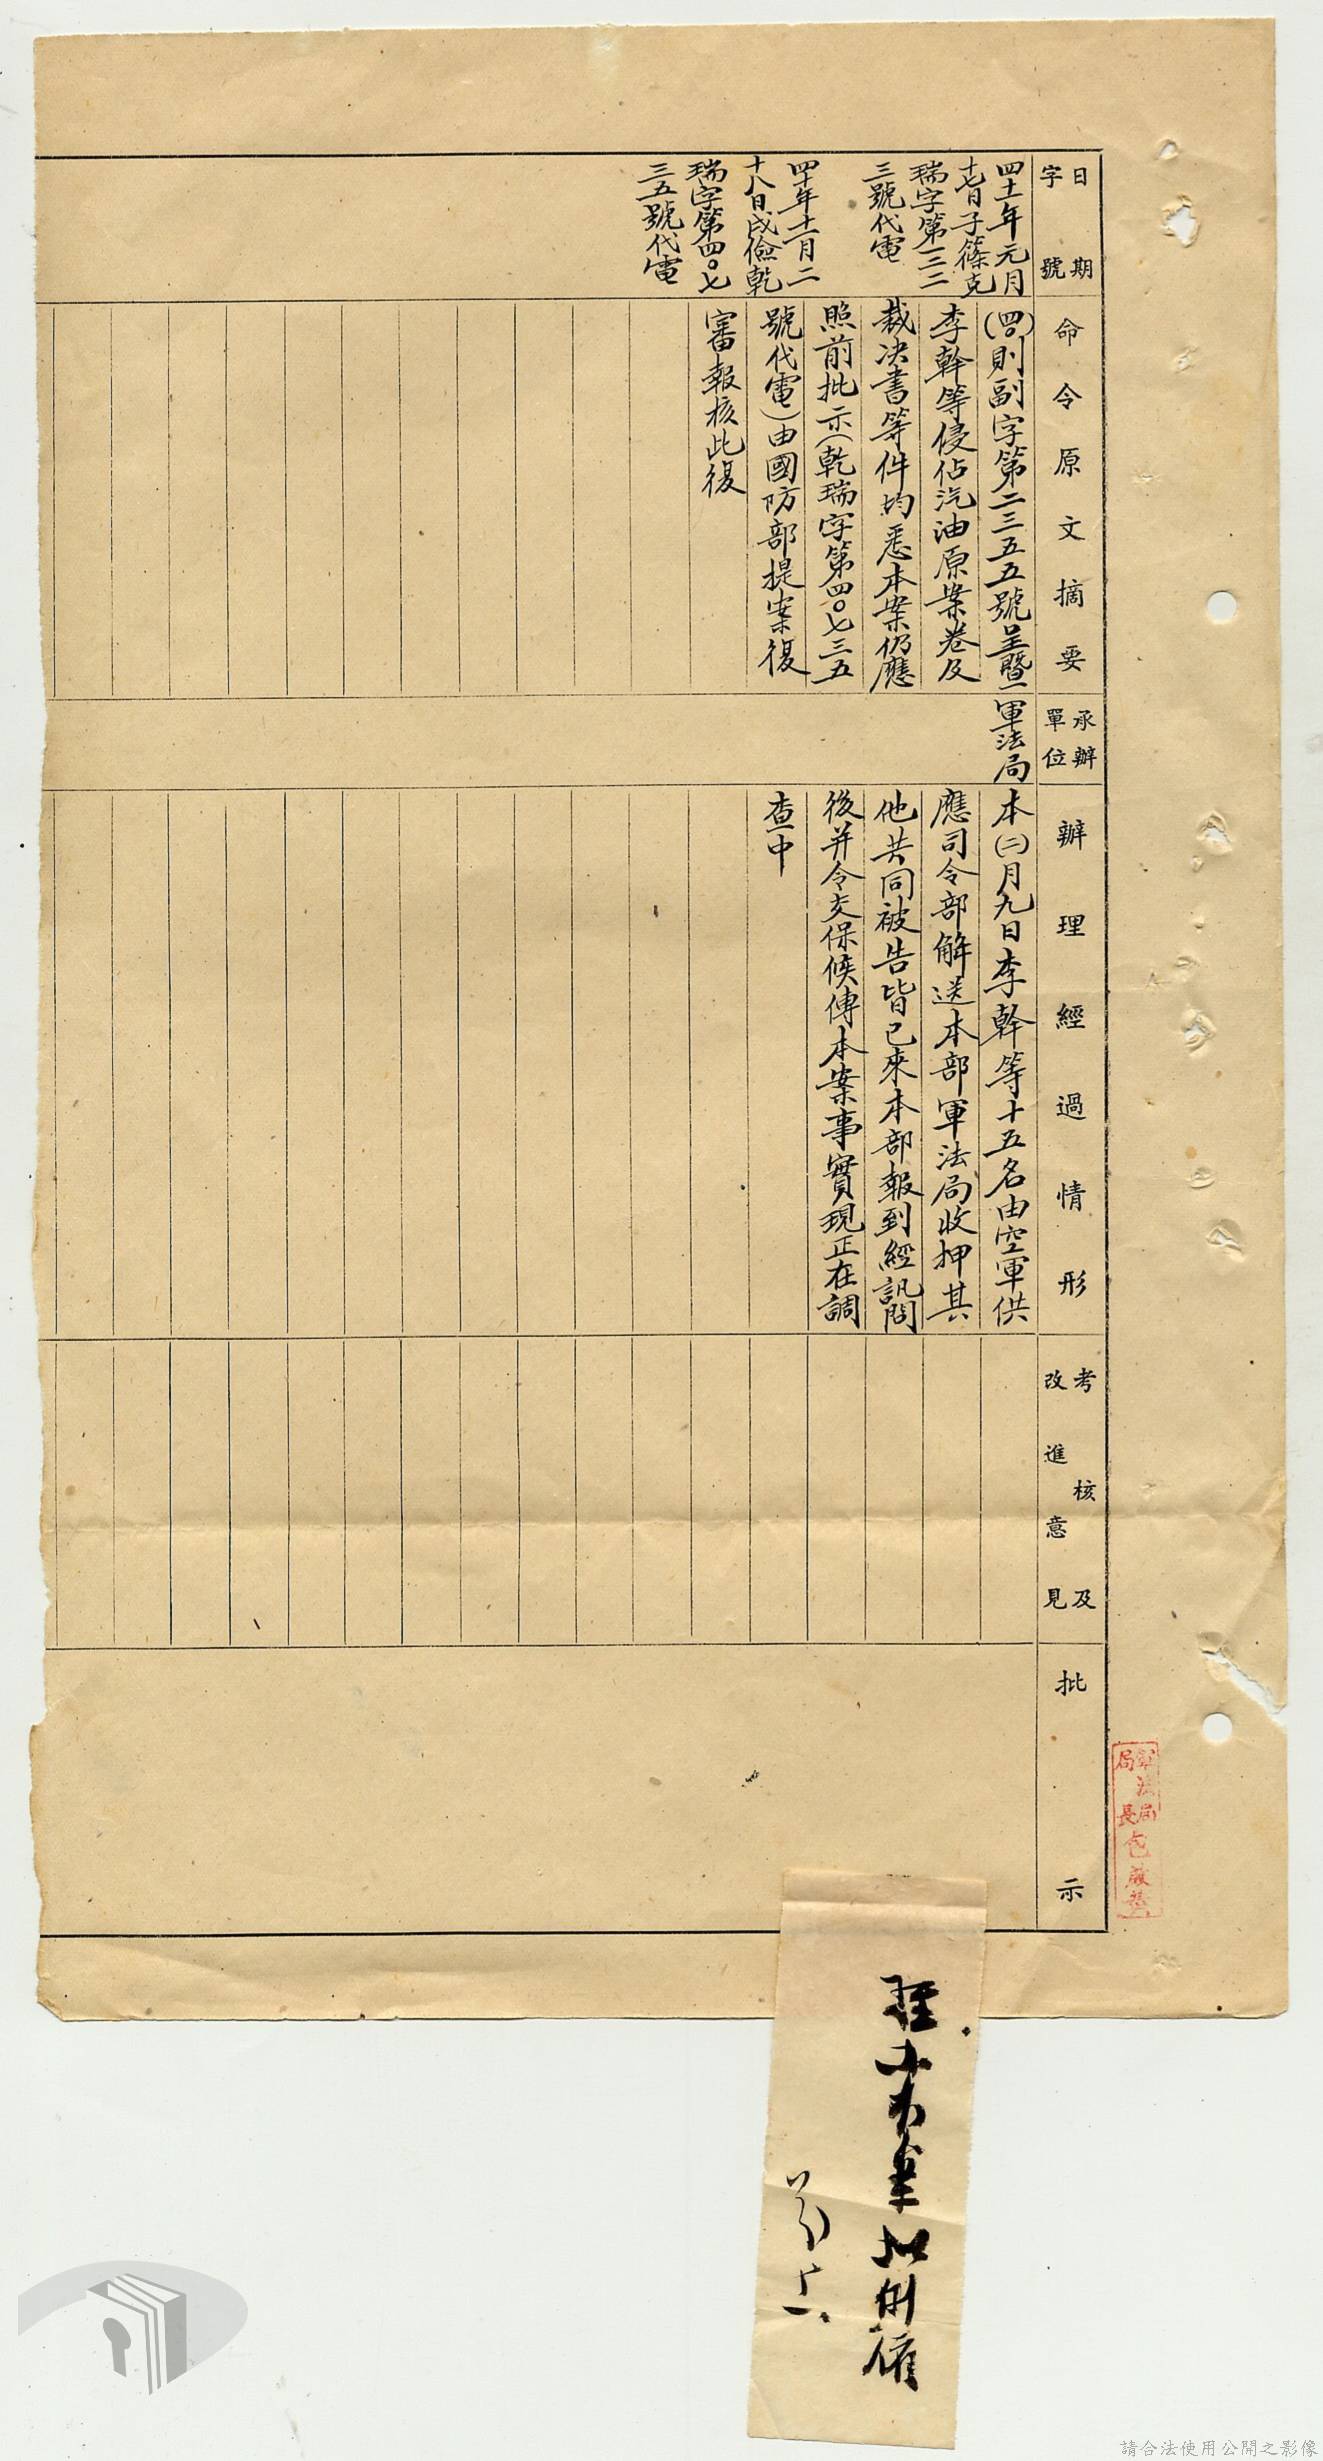 日期
字號
命令原文摘要
承辦
單位
辦理經過情形
考核及
改進意見
批示
四十一年元月
十七日子篠克
瑞字第一二二
三號代電
四十年十一月二
十八日戌儉乾
瑞字第四〇七
三五號代電
(四〇)則副字第二三五五號呈暨
李幹等侵佔汽油原案卷及
裁决書等件均悉本案仍應
照前批示(乾瑞字第四〇七三五
號代電)由國防部提案復
審報核此復
軍法局
本(二)月九日李幹等十五名由空軍供
應司令部解送本部軍法局收押其
他共同被告皆已來本部報到經訊問
後并令交保候傳本案事實現正在調
查中
軍法局
局長包啟黃
請合法使用公開之影像